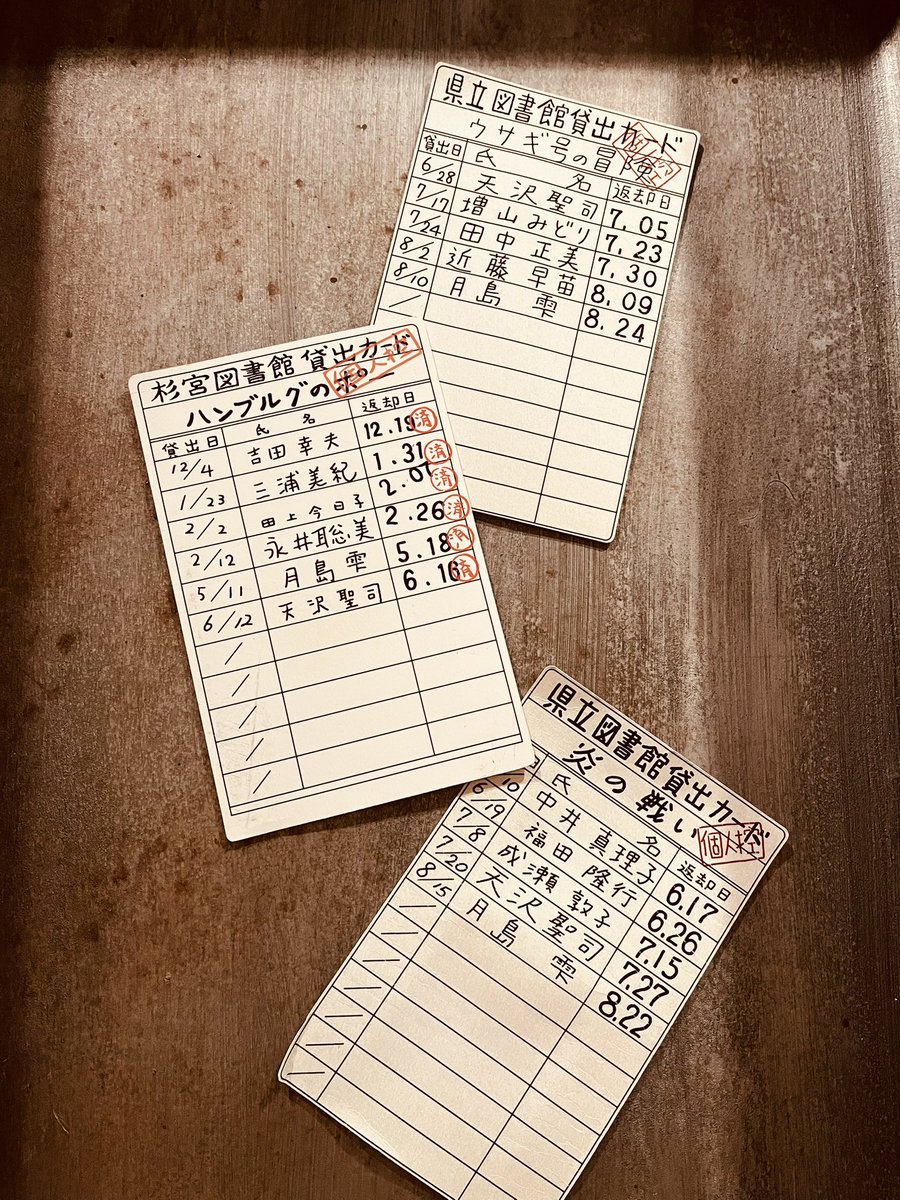 県立図書館貸出カード
ウサギ号の冒険
貸出日 氏名 返却日
6/28 天沢聖司 7.05
7/17 増山みどり 7.23
7/24 田中正美 7.30
8/2 近藤早苗 8.09
8/10 月島雫 8.24
/
杉宮図書館貸出カード
ハンブルグのポー
個人控
貸出日 氏名 返却日
12/4 吉田幸夫 12.19 済
1/23 三浦美紀 1.31 済
2/2 田上今日子 2.07 済
2/12 永井聡美 2.26 済
5/11 月島雫 5.18 済
6/12 天沢聖司 6.16 済
/
/
/
/
/
県立図書館貸出カード
炎の戦い
個人控
氏名 返却日
10 中井真理子 6.17
6/19 福田隆行 6.26
7/8 成瀬敦子 7.15
7/20 天沢聖司 7.27
8/15 月島雫 8.22
/
/
/
/
/
/